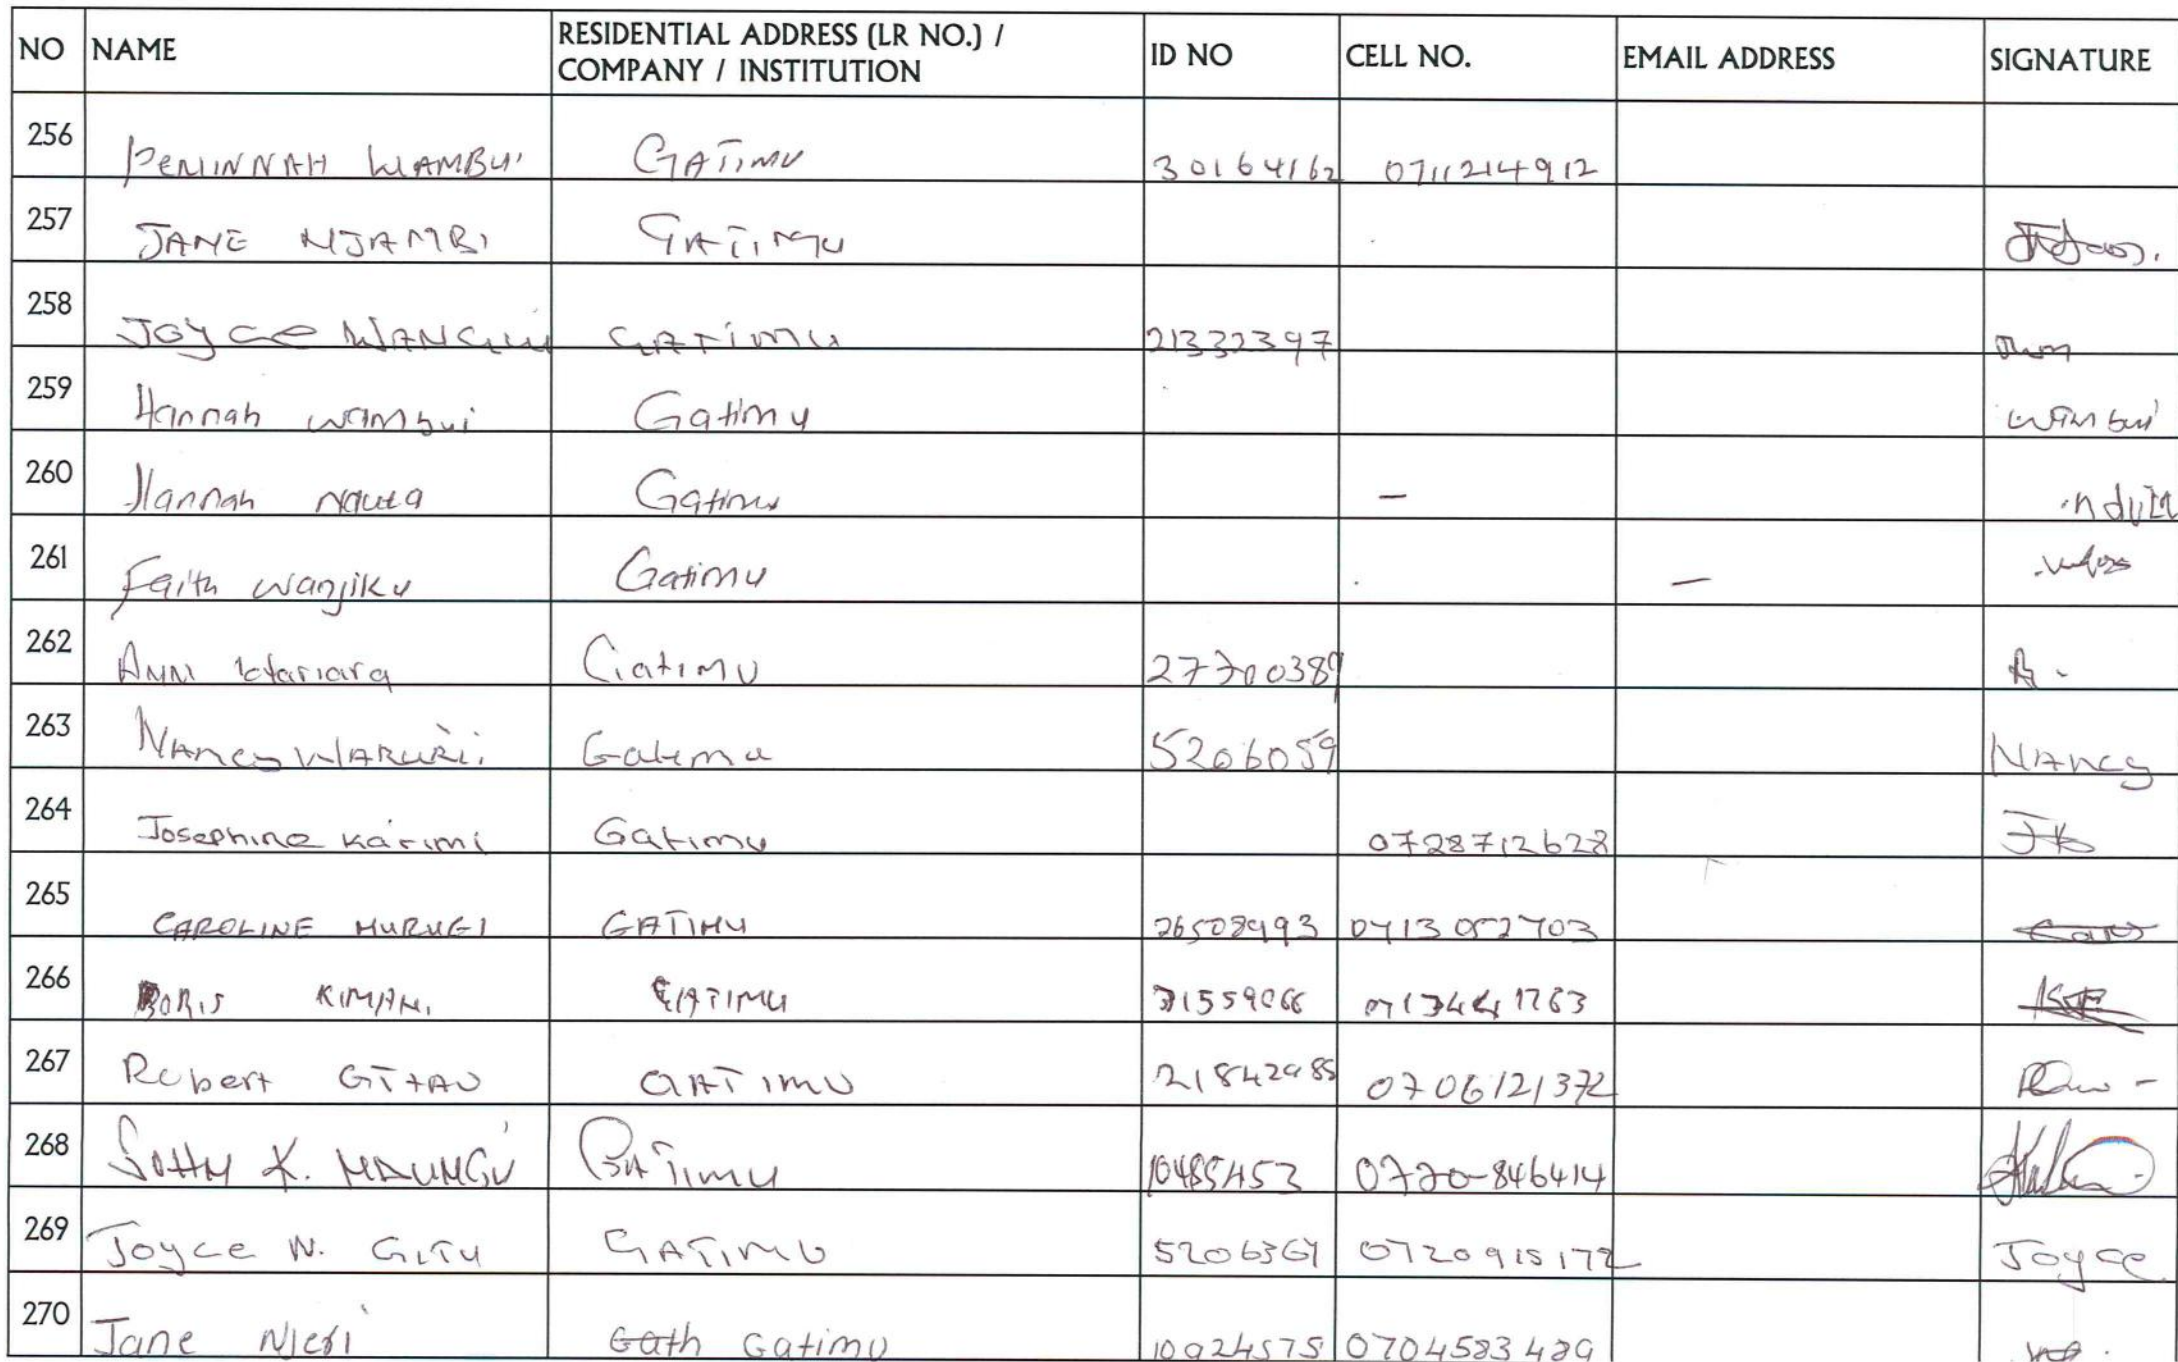 NO NAME RESIDENTIAL ADDRESS (LR NO.) / COMPANY / INSTITUTION ID NO CELL NO. EMAIL ADDRESS SIGNATURE
256 PENINNAH WAMBUI GATIMU 30164162 0711214912
257 JANE NJAMBI GATIMU
258 JOYCE WANGUI GATIMU 21332397
259 Hannah wambui Gatimu wambui
260 Hannah Gatimu –
261 Faith wanjiku Gatimu –
262 ANN Wariara Gatimu 27700389
263 NANCY WARUIRI Gatimu 5206059 NANCY
264 Josephine Karimi Gatimu 0728712628 JK
265 CAROLINE MURUGI GATIMU 26508993 0713052703
266 BORIS KIMANI GATIMU 31559066
267 Robert GITAU GATIMU 21842985 0706121372
268 JOHN K. GATIMU 0720-846414
269 Joyce W. GITU GATIMU 5206364 0720915172 Joyce
270 Jane Njeri Gath Gatimu 10924575 0704583489